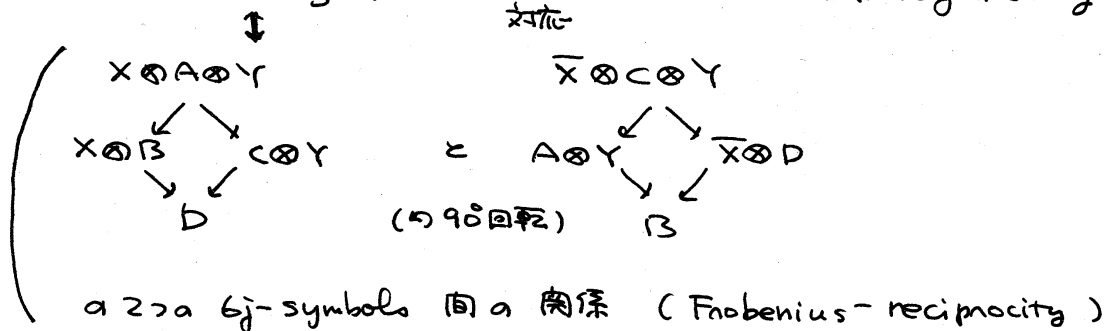 対応
X⊗A⊗Y X̄⊗C⊗Y
X⊗B C⊗Y と A⊗Y X̄⊗D
D (の90°回転) B
の2つの 6j-symbols 間の関係 (Frobenius-reciprocity)